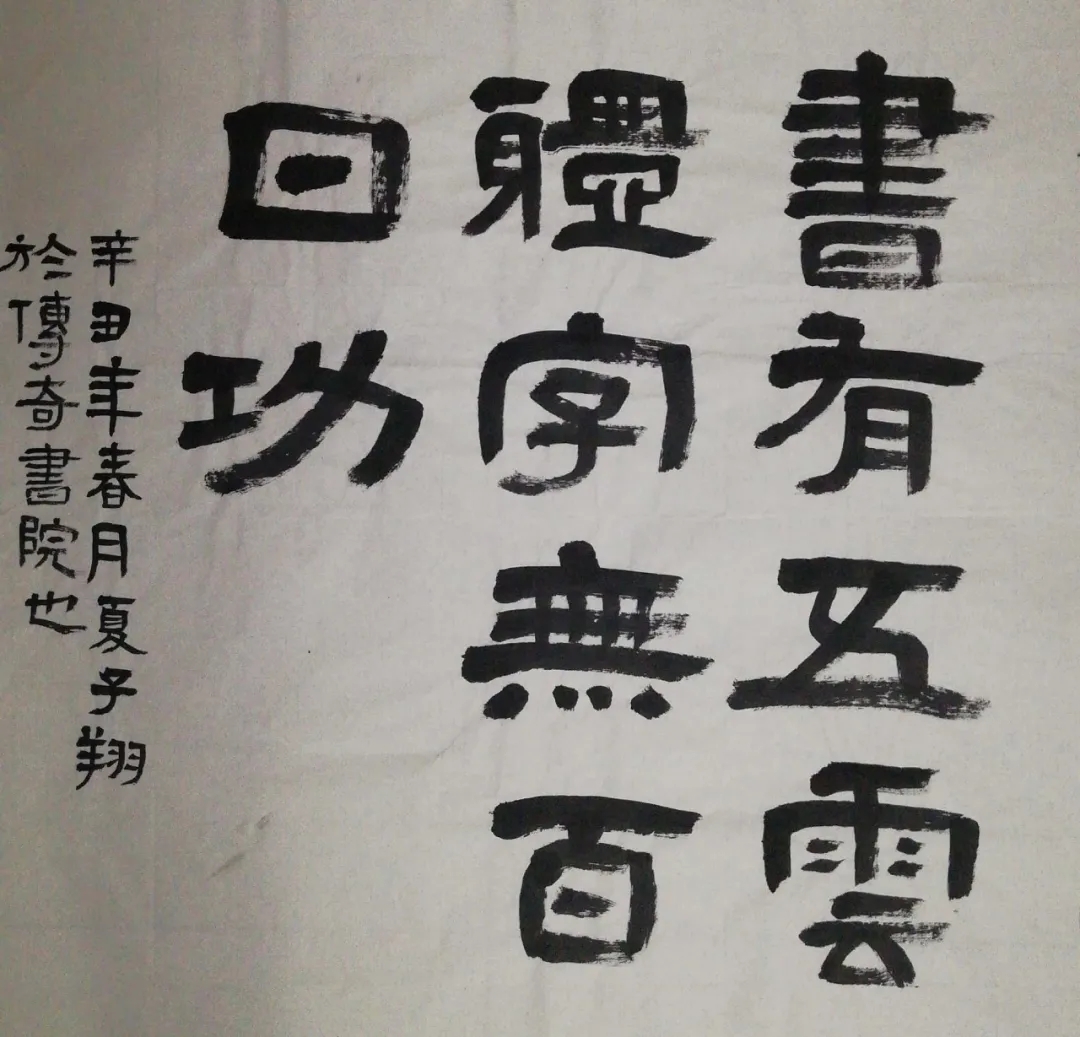 書有五雲
軆字無百
日功
辛丑年春月夏子翔
於傳奇書院也